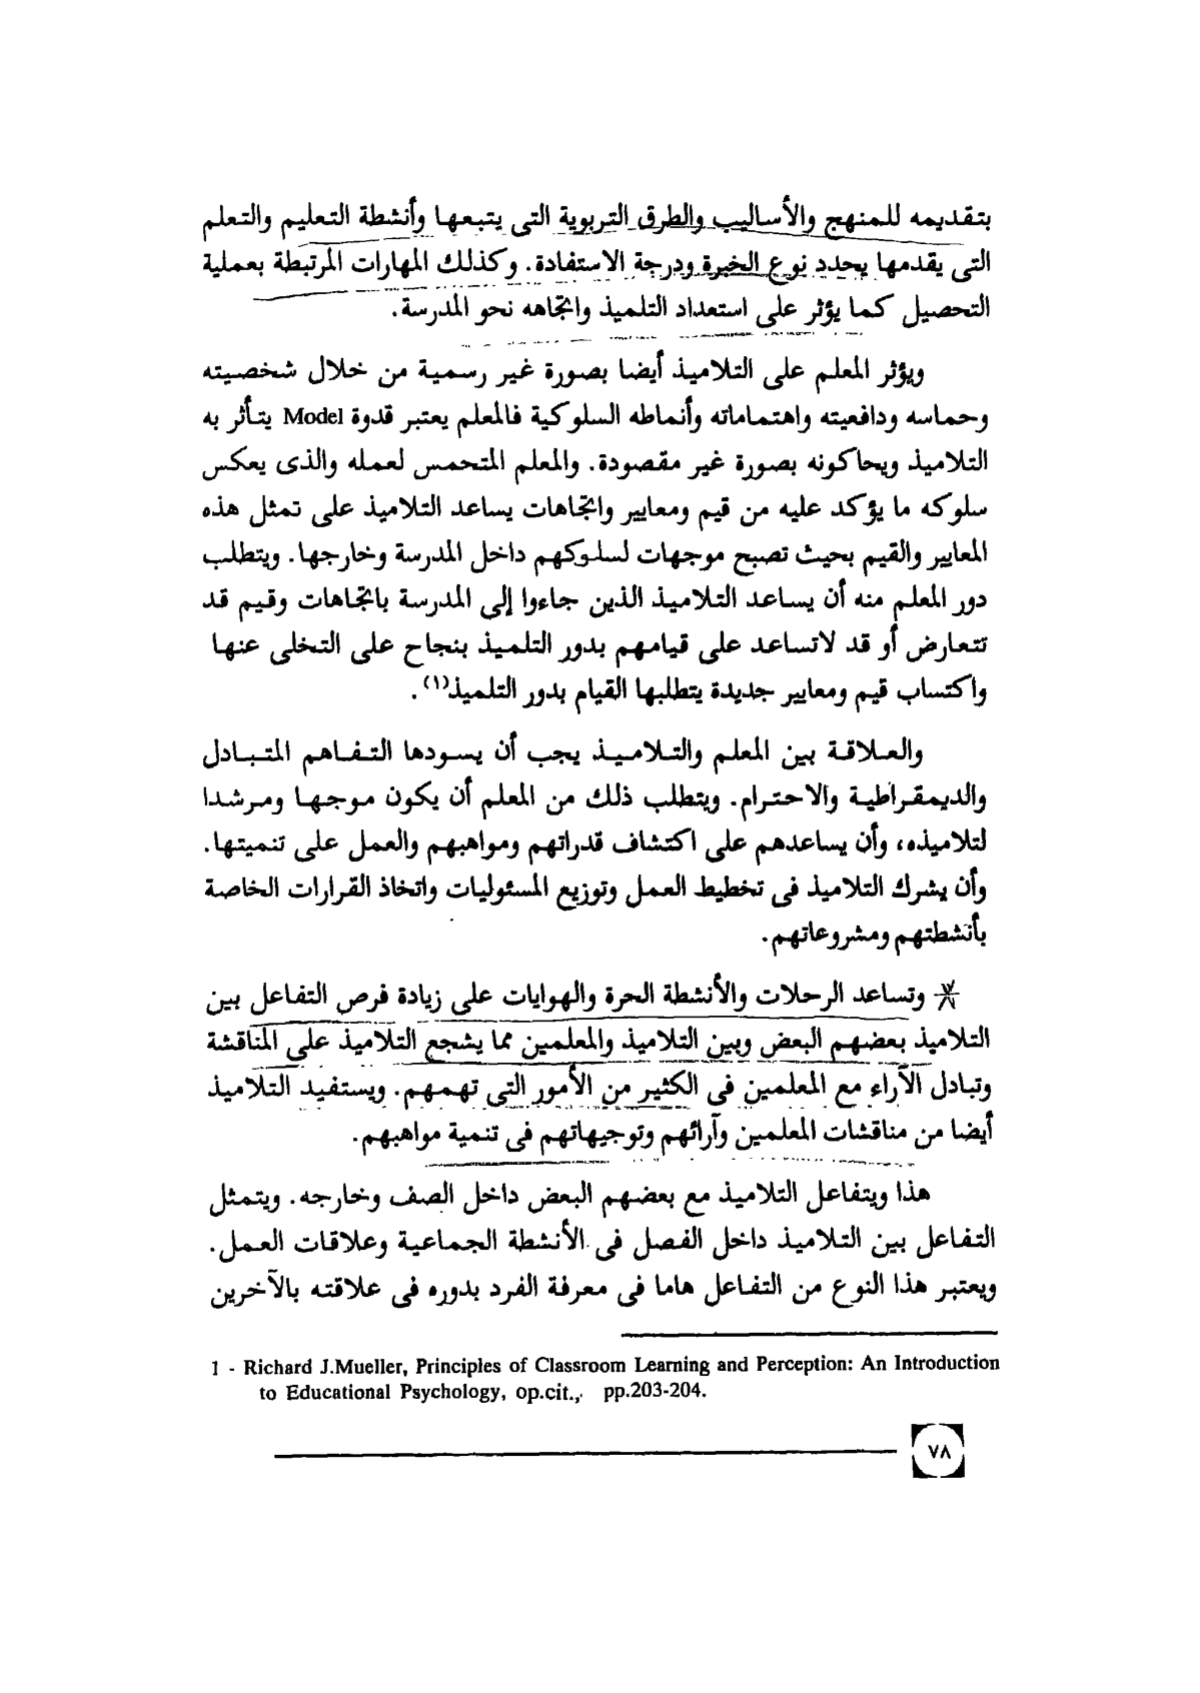 بتقديمه للمنهج والأساليب والطرق التربوية التى يتبعها وأنشطة التعليم والتعلم
التى يقدمها يحدد نوع الخبرة ودرجة الاستفادة. وكذلك المهارات المرتبطة بعملية
التحصيل كما يؤثر على استعداد التلميذ واتجاهه نحو المدرسة.
ويؤثر المعلم على التلاميذ أيضا بصورة غير رسمية من خلال شخصيته
وحماسه ودافعيته واهتماماته وأنماطه السلوكية فالمعلم يعتبر قدوة Model يتأثر به
التلاميذ ويحاكونه بصورة غير مقصودة. والمعلم المتحمس لعمله والذى يعكس
سلوكه ما يؤكد عليه من قيم ومعايير واتجاهات يساعد التلاميذ على تمثل هذه
المعايير والقيم بحيث تصبح موجهات لسلوكهم داخل المدرسة وخارجها. ويتطلب
دور المعلم منه أن يساعد التلاميذ الذين جاءوا إلى المدرسة باتجاهات وقيم قد
تتعارض أو قد لاتساعد على قيامهم بدور التلميذ بنجاح على التخلى عنها
واكتساب قيم ومعايير جديدة يتطلبها القيام بدور التلميذ(١).
والعلاقة بين المعلم والتلاميذ يجب أن يسودها التفاهم المتبادل
والديمقراطية والاحترام. ويتطلب ذلك من المعلم أن يكون موجها ومرشدا
لتلاميذه، وأن يساعدهم على اكتشاف قدراتهم ومواهبهم والعمل على تنميتها.
وأن يشرك التلاميذ فى تخطيط العمل وتوزيع المسئوليات واتخاذ القرارات الخاصة
بأنشطتهم ومشروعاتهم.
* وتساعد الرحلات والأنشطة الحرة والهوايات على زيادة فرص التفاعل بين
التلاميذ بعضهم البعض وبين التلاميذ والمعلمين مما يشجع التلاميذ على المناقشة
وتبادل الآراء مع المعلمين فى الكثير من الأمور التى تهمهم. ويستفيد التلاميذ
أيضا من مناقشات المعلمين وآرائهم وتوجيهاتهم فى تنمية مواهبهم.
هذا ويتفاعل التلاميذ مع بعضهم البعض داخل الصف وخارجه. ويتمثل
التفاعل بين التلاميذ داخل الفصل فى الأنشطة الجماعية وعلاقات العمل.
ويعتبر هذا النوع من التفاعل هاما فى معرفة الفرد بدوره فى علاقته بالآخرين
1 - Richard J.Mueller, Principles of Classroom Learning and Perception: An Introduction
to Educational Psychology, op.cit., pp.203-204.
٧٨